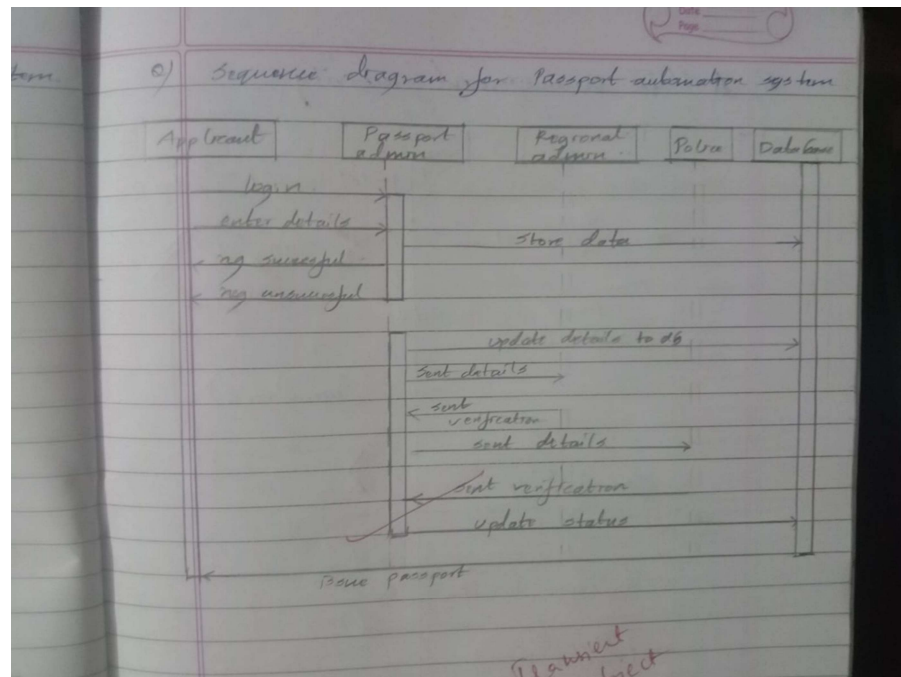 tem
Date
Page
Q) Sequence diagram for Passport automation system
Applicant Passport admin Regional admin Police Database
login
enter details
store data
reg successful
reg unsuccessful
update details to db
sent details
sent
verification
sent details
sent verification
update status
Issue passport
Transient